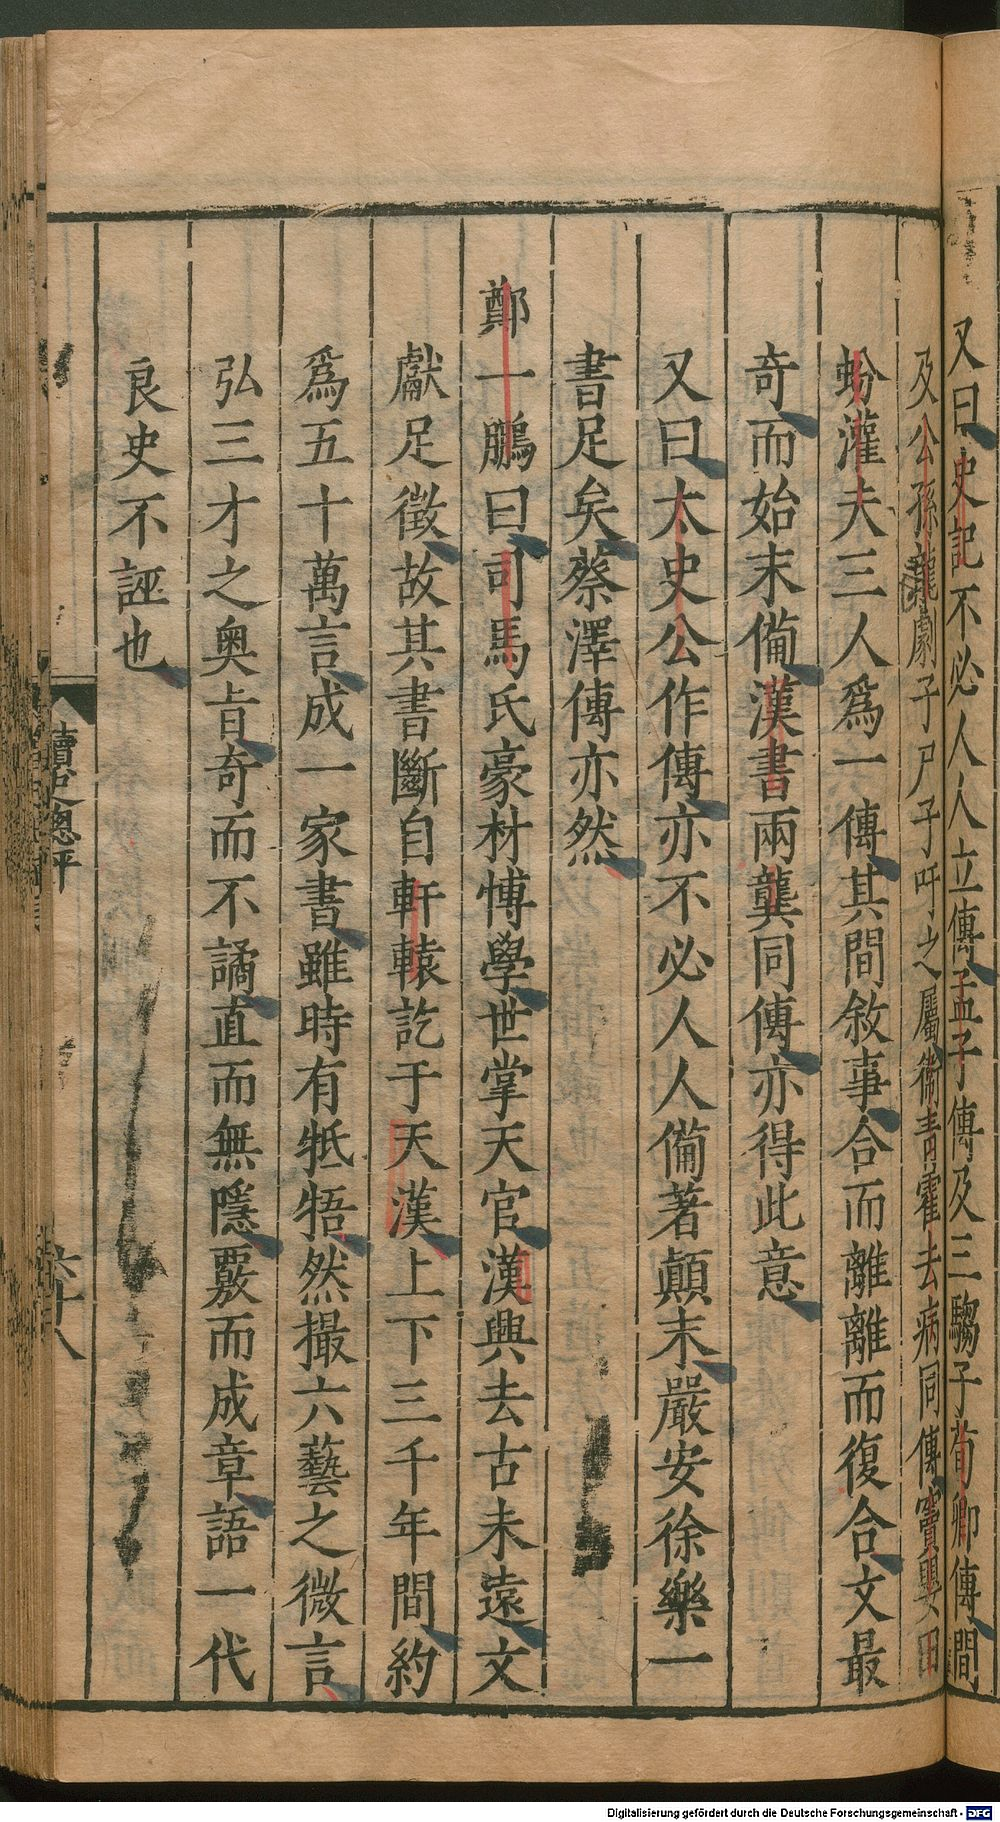 又曰史記不必人人立傳孟子傳及三騶子荀卿傳間
及公孫龍劇子尸子吁之屬衛青霍去病同傳竇嬰田
蚡灌夫三人爲一傳其間敘事合而離離而復合文最
奇而始末備漢書兩龔同傳亦得此意
又曰太史公作傳亦不必人人備著顛末嚴安徐樂一
書足矣蔡澤傳亦然
鄭一鵬曰司馬氏豪材博學世掌天官漢興去古未遠文
獻足徵故其書斷自軒轅訖于天漢上下三千年間約
爲五十萬言成一家書雖時有牴牾然撮六藝之微言
弘三才之奧旨奇而不譎直而無隱覈而成章語一代
良史不誣也
讀史總評
六十八
Digitalisierung gefördert durch die Deutsche Forschungsgemeinschaft - DFG